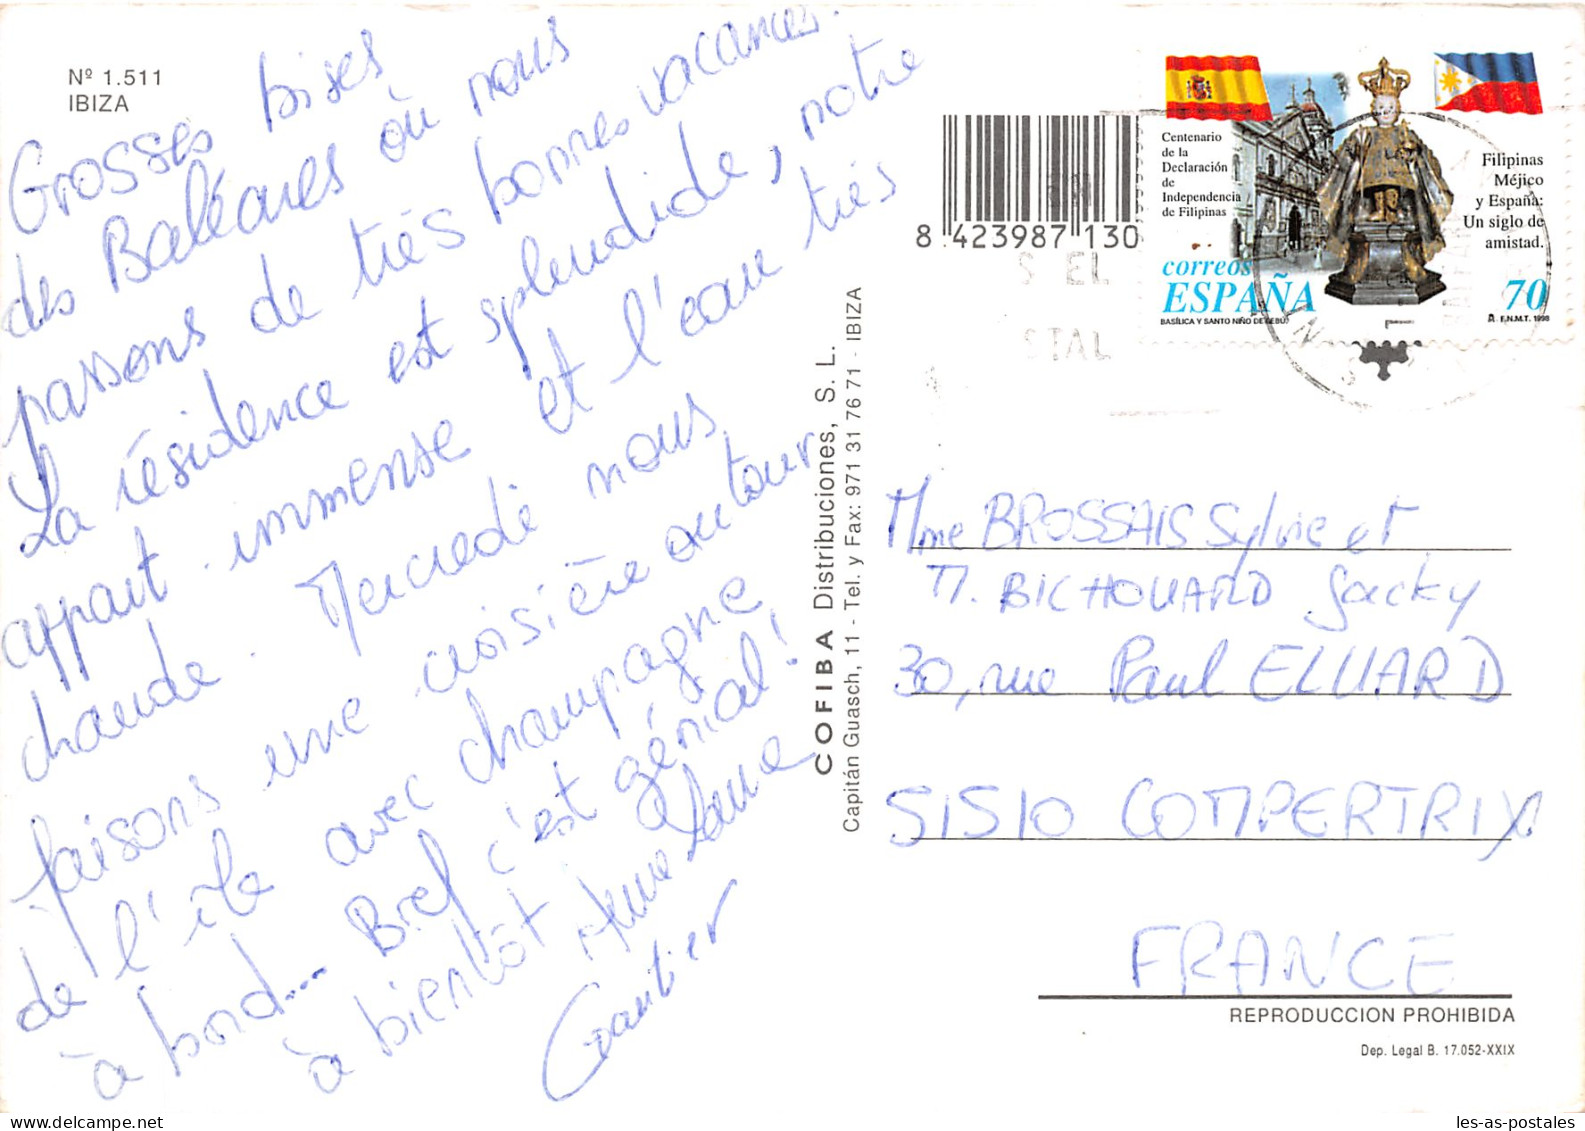 Nº 1.511
IBIZA
Grosses bises
des Baléares où nous
passons de très bonnes vacances.
La résidence est splendide, notre
appart immense et l'eau très
chaude. Mercredi nous
faisons une croisière autour
de l'île avec champagne
à bord... Bref c'est génial!
à bientôt
Gautier
COFIBA Distribuciones, S. L.
Capitán Guasch, 11 - Tel. y Fax: 971 31 76 71 - IBIZA
8 423987 130
S EL
STAL
Centenario
de la
Declaración
de
Independencia
de Filipinas
Filipinas
Méjico
y España:
Un siglo de
amistad.
correos
ESPAÑA
70
BASÍLICA Y SANTO NIÑO DE CEBÚ
F.N.M.T. 1998
Mme BROSSAIS Sylvie et
M. BICHOUARD Jacky
30, rue Paul ELUARD
51510 COMPERTRIX
FRANCE
REPRODUCCION PROHIBIDA
Dep. Legal B. 17.052-XXIX
les-as-postales